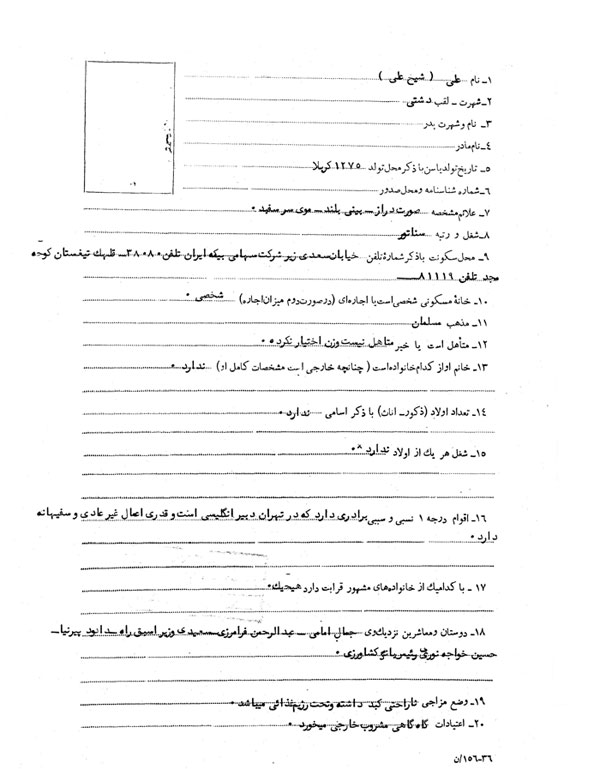 ۱ـ نام علی ( شیخ علی )
۲ـ شهرت ـ لقب دشتی
۳ ـ نام وشهرت پدر
۴ ـ نام مادر
۵ ـ تاریخ تولد یا سن با ذکر محل تولد ۱۲۷۵ کربلا
۶ ـ شماره شناسنامه و محل صدور
۷ ـ علائم مشخصه صورت دراز ـ بینی بلند ـ موی سر سفید ۰
۸ ـ شغل و رتبه سناتور
۹ ـ محل سکونت با ذکر شمارهٔ تلفن خیابان سعدی زیر شرکت سهامی بیمه ایران تلفن ۳۸۰۸۰ ـ قلهک تیغستان کوچه
مجد تلفن ۸۱۱۱۹
۱۰ ـ خانهٔ مسکونی شخصی است یا اجاره‌ای (در صورت دوم میزان اجاره) شخصی ۰
۱۱ ـ مذهب مسلمان
۱۲ ـ متأهل است یا خیر متاهل نیست وزن اختیار نکرده ۰
۱۳ ـ خانم او از کدام خانواده است ( چنانچه خارجی است مشخصات کامل او) ندارد ۰
۱۴ ـ تعداد اولاد (ذکور ـ اناث) با ذکر اسامی ندارد ۰
۱۵ ـ شغل هر یک از اولاد ندارد ۰
۱۶ـ اقوام درجه ۱ نسبی و سببی برادری دارد که در تهران دبیر انگلیسی است و قدری اعمال غیر عادی و سفیهانه
دارد ۰
۱۷ ـ با کدامیک از خانواده‌های مشهور قرابت دارد هیچیک۰
۱۸ ـ دوستان و معاشرین نزدیک وی جمال امامی ـ عبدالرحمن فرامرزی ـ سعیدی وزیر اسبق راه ـ داود پیرنیا ـ
حسین خواجه نوری رئیس بانک کشاورزی ۰
۱۹ ـ وضع مزاجی ناراحتی کبد داشته و تحت رژیم غذائی میباشد ۰
۲۰ ـ اعتیادات گاه گاهی مشروب خارجی میخورد ۰
۳۶ـ۱۵۶/ن